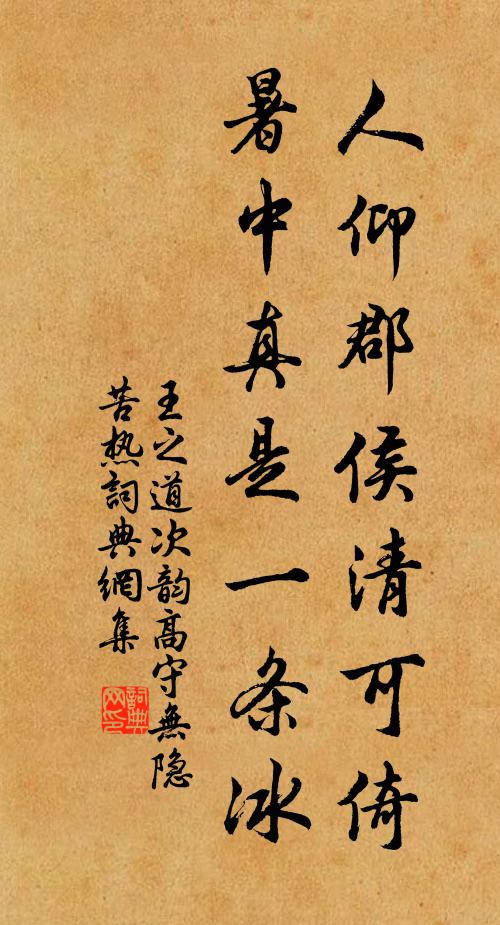 人仰郡侯清可倚
暑中真是一条冰
王之道次韵高守無隐
苦热詞典網集
詞典网印